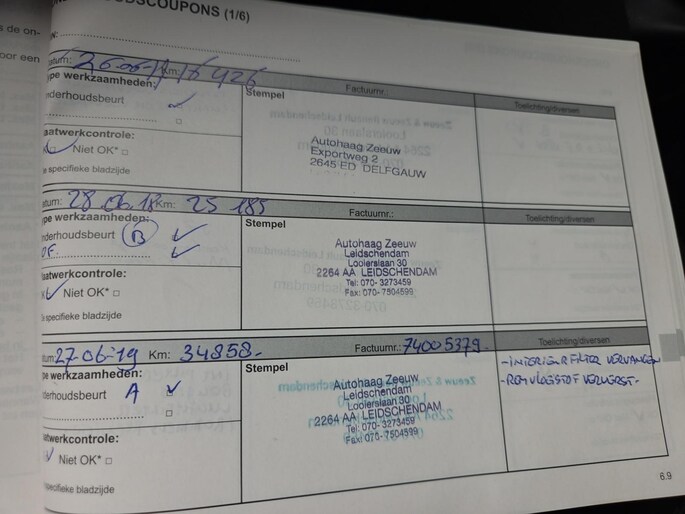 DSCOUPONS (1/6)
s de on-
oor een
N:
atum: 26-06-17 Km: 16 426 Factuurnr.:
ype werkzaamheden: Stempel Toelichting/diversen
nderhoudsbeurt ✓
Autohaag Zeeuw
Exportweg 2
2645 ED DELFGAUW
aatwerkcontrole:
Niet OK*
e specifieke bladzijde
atum: 28.06.18 Km: 25 185 Factuurnr.:
ype werkzaamheden: Stempel Toelichting/diversen
nderhoudsbeurt B ✓
Autohaag Zeeuw
Leidschendam
Looierslaan 30
2264 AA LEIDSCHENDAM
Tel: 070-3273459
Fax: 070-7504599
aatwerkcontrole:
✓ Niet OK*
e specifieke bladzijde
tum: 27-06-19 Km: 34858.- Factuurnr.: 74005379.-
pe werkzaamheden: Stempel Toelichting/diversen
derhoudsbeurt A ✓
Autohaag Zeeuw
Leidschendam
Looierslaan 30
2264 AA LEIDSCHENDAM
Tel: 070-3273459
Fax: 070-7504599
- INTERIEURFILTER VERVANGEN
- REMVLOEISTOF VERVERST-
aatwerkcontrole:
✓ Niet OK*
specifieke bladzijde
6.9